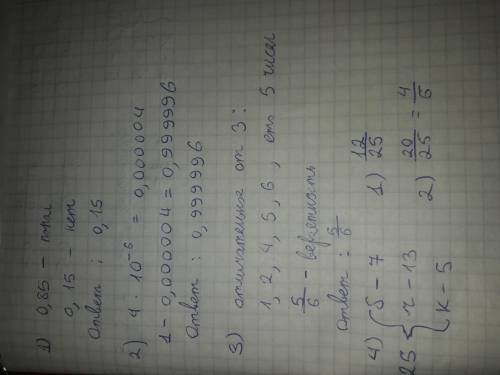 1) 0,85 – попал
0,15 – нет
Ответ: 0,15
2) 4 · 10⁻⁶ = 0,000004
1 – 0,000004 = 0,999996
Ответ: 0,999996
3) отличающееся от 3:
1, 2, 4, 5, 6, его 5 чисел
5/6 – вероятность
Ответ: 5/6
4) 25 { S – 7 1) 12/25
r – 13 2) 20/25 = 4/5
k – 5